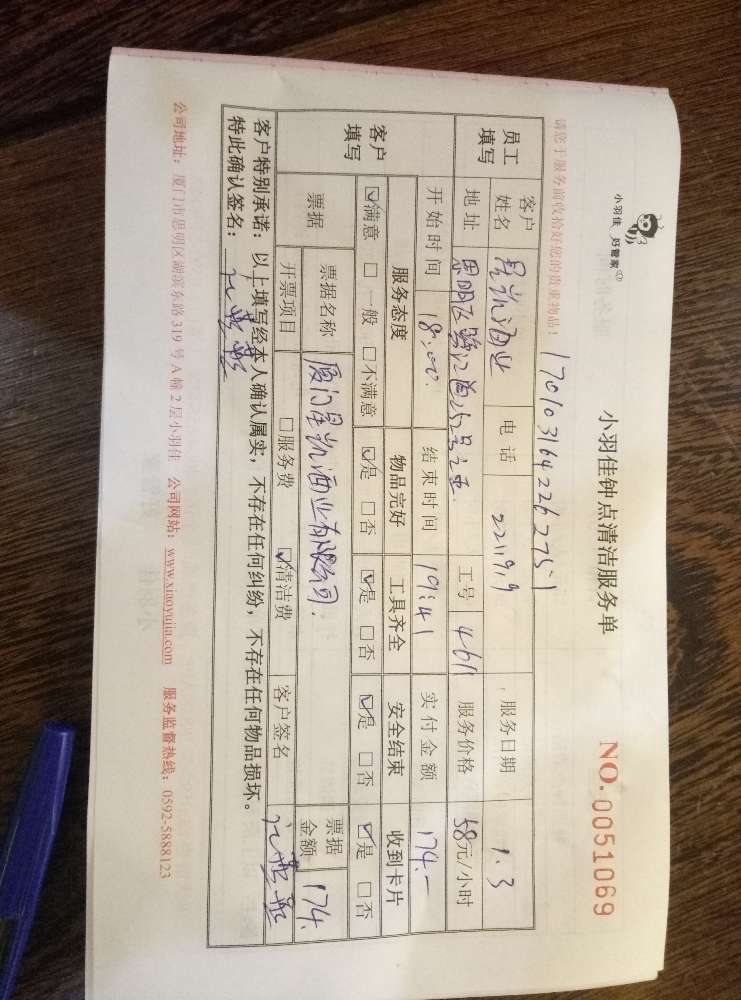 小羽佳 好管家
小羽佳钟点清洁服务单
NO.0051069
请您于服务前收拾好您的贵重物品！
170103164226275-1
员工填写
客户姓名 星凯酒业 电话 2211919 服务日期 1.3
地址 思明区 号之 工号 4611 服务价格 58元/小时
开始时间 18:00 结束时间 19:41 实付金额 174.-
客户填写
服务态度 物品完好 工具齐全 安全结束 收到卡片
☑满意 □一般 □不满意 ☑是 □否 ☑是 □否 ☑是 □否 ☑是 □否
票据 票据名称 厦门星凯酒业有限公司. 票据金额 174.
开票项目 □服务费 ☑清洁费 客户签名
客户特别承诺：以上填写经本人确认属实，不存在任何纠纷，不存在任何物品损坏。
特此确认签名：
公司地址：厦门市思明区湖滨东路319号A幢2层小羽佳 公司网站：www.xiaoyujia.com 服务监督热线：0592-5888123